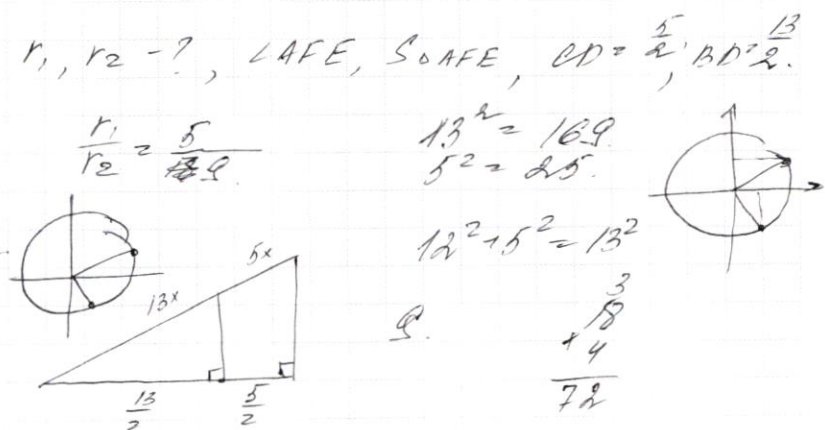 r₁, r₂ - ?, ∠AFE, S△AFE, CD = 5/2; BD = 13/2.
r₁/r₂ = 5/9.
13² = 169.
5² = 25.
12² + 5² = 13²
5x
13x
9.
3
18
× 4
72
13/2
5/2